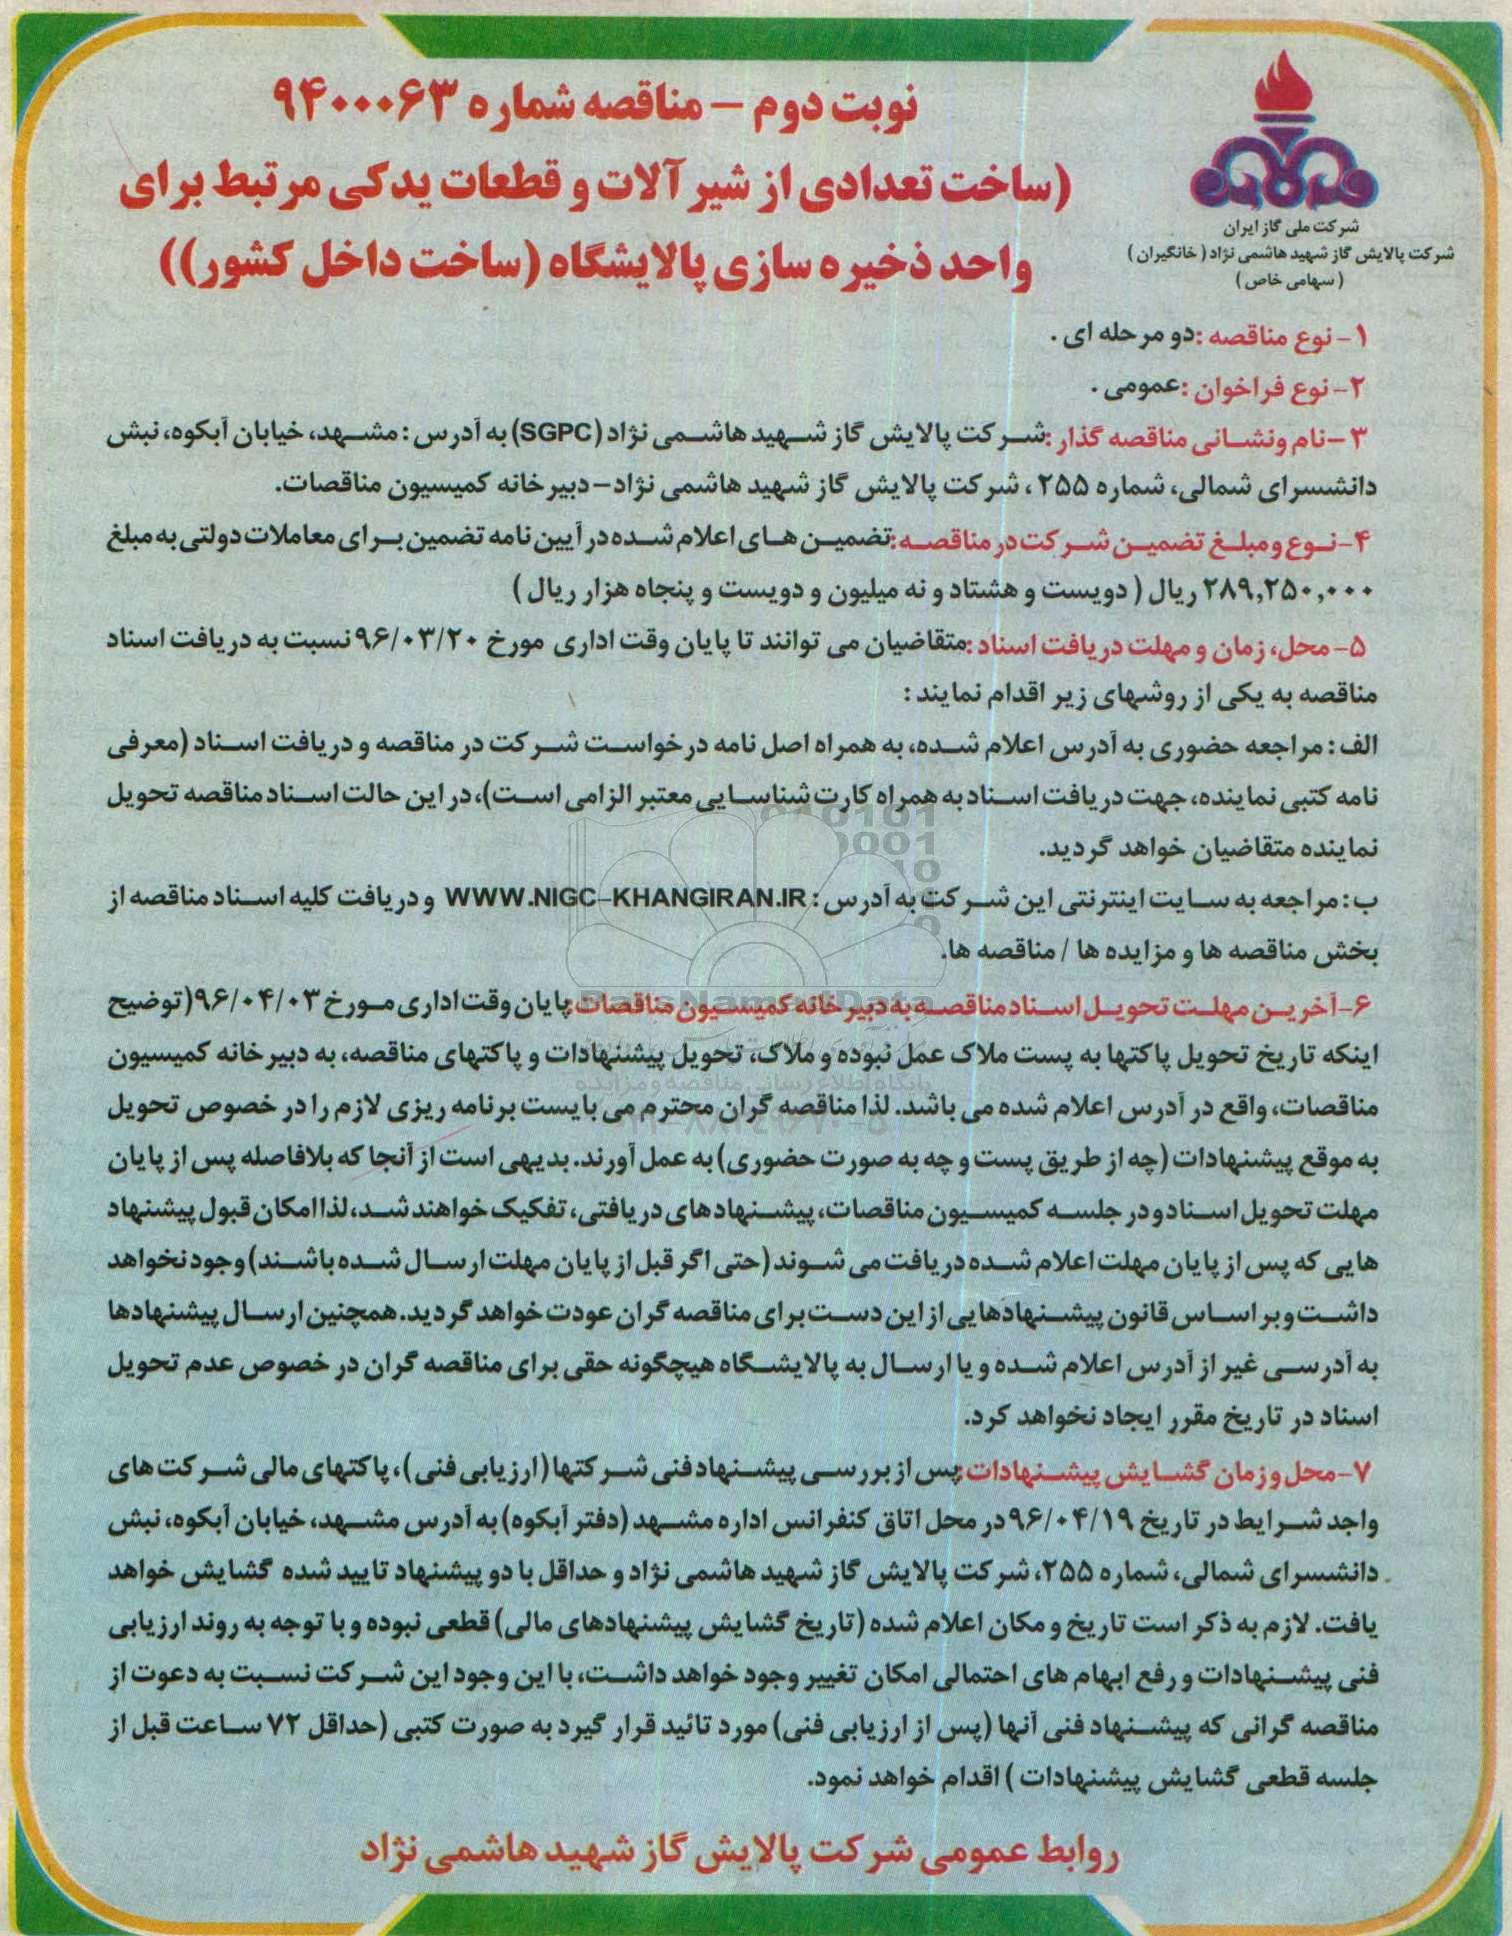 نوبت دوم – مناقصه شماره ۹۴۰۰۰۶۳
(ساخت تعدادی از شیر آلات و قطعات یدکی مرتبط برای
واحد ذخیره سازی پالایشگاه (ساخت داخل کشور))
شرکت ملی گاز ایران
شرکت پالایش گاز شهید هاشمی نژاد ( خانگیران )
( سهامی خاص )
۱- نوع مناقصه :دو مرحله ای .
۲- نوع فراخوان :عمومی .
۳ –نام ونشانی مناقصه گذار :شرکت پالایش گاز شهید هاشمی نژاد (SGPC) به آدرس : مشهد، خیابان آبکوه، نبش
دانشسرای شمالی، شماره ۲۵۵ ، شرکت پالایش گاز شهید هاشمی نژاد– دبیرخانه کمیسیون مناقصات.
۴-نوع ومبلغ تضمین شرکت در مناقصه:تضمین های اعلام شده در آیین نامه تضمین برای معاملات دولتی به مبلغ
۲۸۹,۲۵۰,۰۰۰ ریال ( دویست و هشتاد و نه میلیون و دویست و پنجاه هزار ریال )
۵- محل، زمان و مهلت دریافت اسناد :متقاضیان می توانند تا پایان وقت اداری مورخ ۹۶/۰۳/۲۰ نسبت به دریافت اسناد
مناقصه به یکی از روشهای زیر اقدام نمایند :
الف : مراجعه حضوری به آدرس اعلام شده، به همراه اصل نامه درخواست شرکت در مناقصه و دریافت اسناد (معرفی
نامه کتبی نماینده، جهت دریافت اسناد به همراه کارت شناسایی معتبر الزامی است)، در این حالت اسناد مناقصه تحویل
نماینده متقاضیان خواهد گردید.
ب : مراجعه به سایت اینترنتی این شرکت به آدرس : WWW.NIGC-KHANGIRAN.IR و دریافت کلیه اسناد مناقصه از
بخش مناقصه ها و مزایده ها / مناقصه ها.
۶- آخرین مهلت تحویل اسناد مناقصه به دبیرخانه کمیسیون مناقصات: پایان وقت اداری مورخ ۹۶/۰۴/۰۳ (توضیح
اینکه تاریخ تحویل پاکتها به پست ملاک عمل نبوده و ملاک، تحویل پیشنهادات و پاکتهای مناقصه، به دبیرخانه کمیسیون
مناقصات، واقع در آدرس اعلام شده می باشد. لذا مناقصه گران محترم می بایست برنامه ریزی لازم را در خصوص تحویل
به موقع پیشنهادات (چه از طریق پست و چه به صورت حضوری) به عمل آورند. بدیهی است از آنجا که بلافاصله پس از پایان
مهلت تحویل اسناد و در جلسه کمیسیون مناقصات، پیشنهادهای دریافتی، تفکیک خواهند شد، لذا امکان قبول پیشنهاد
هایی که پس از پایان مهلت اعلام شده دریافت می شوند (حتی اگر قبل از پایان مهلت ارسال شده باشند) وجود نخواهد
داشت وبر اساس قانون پیشنهادهایی از این دست برای مناقصه گران عودت خواهد گردید. همچنین ارسال پیشنهادها
به آدرسی غیر از آدرس اعلام شده و یا ارسال به پالایشگاه هیچگونه حقی برای مناقصه گران در خصوص عدم تحویل
اسناد در تاریخ مقرر ایجاد نخواهد کرد.
۷-محل وزمان گشایش پیشنهادات: پس از بررسی پیشنهاد فنی شرکتها (ارزیابی فنی )، پاکتهای مالی شرکت های
واجد شرایط در تاریخ ۹۶/۰۴/۱۹ در محل اتاق کنفرانس اداره مشهد (دفتر آبکوه) به آدرس مشهد، خیابان آبکوه، نبش
دانشسرای شمالی، شماره ۲۵۵، شرکت پالایش گاز شهید هاشمی نژاد و حداقل با دو پیشنهاد تایید شده گشایش خواهد
یافت. لازم به ذکر است تاریخ و مکان اعلام شده (تاریخ گشایش پیشنهادهای مالی) قطعی نبوده و با توجه به روند ارزیابی
فنی پیشنهادات و رفع ابهام های احتمالی امکان تغییر وجود خواهد داشت، با این وجود این شرکت نسبت به دعوت از
مناقصه گرانی که پیشنهاد فنی آنها (پس از ارزیابی فنی) مورد تائید قرار گیرد به صورت کتبی (حداقل ۷۲ ساعت قبل از
جلسه قطعی گشایش پیشنهادات ) اقدام خواهد نمود.
روابط عمومی شرکت پالایش گاز شهید هاشمی نژاد